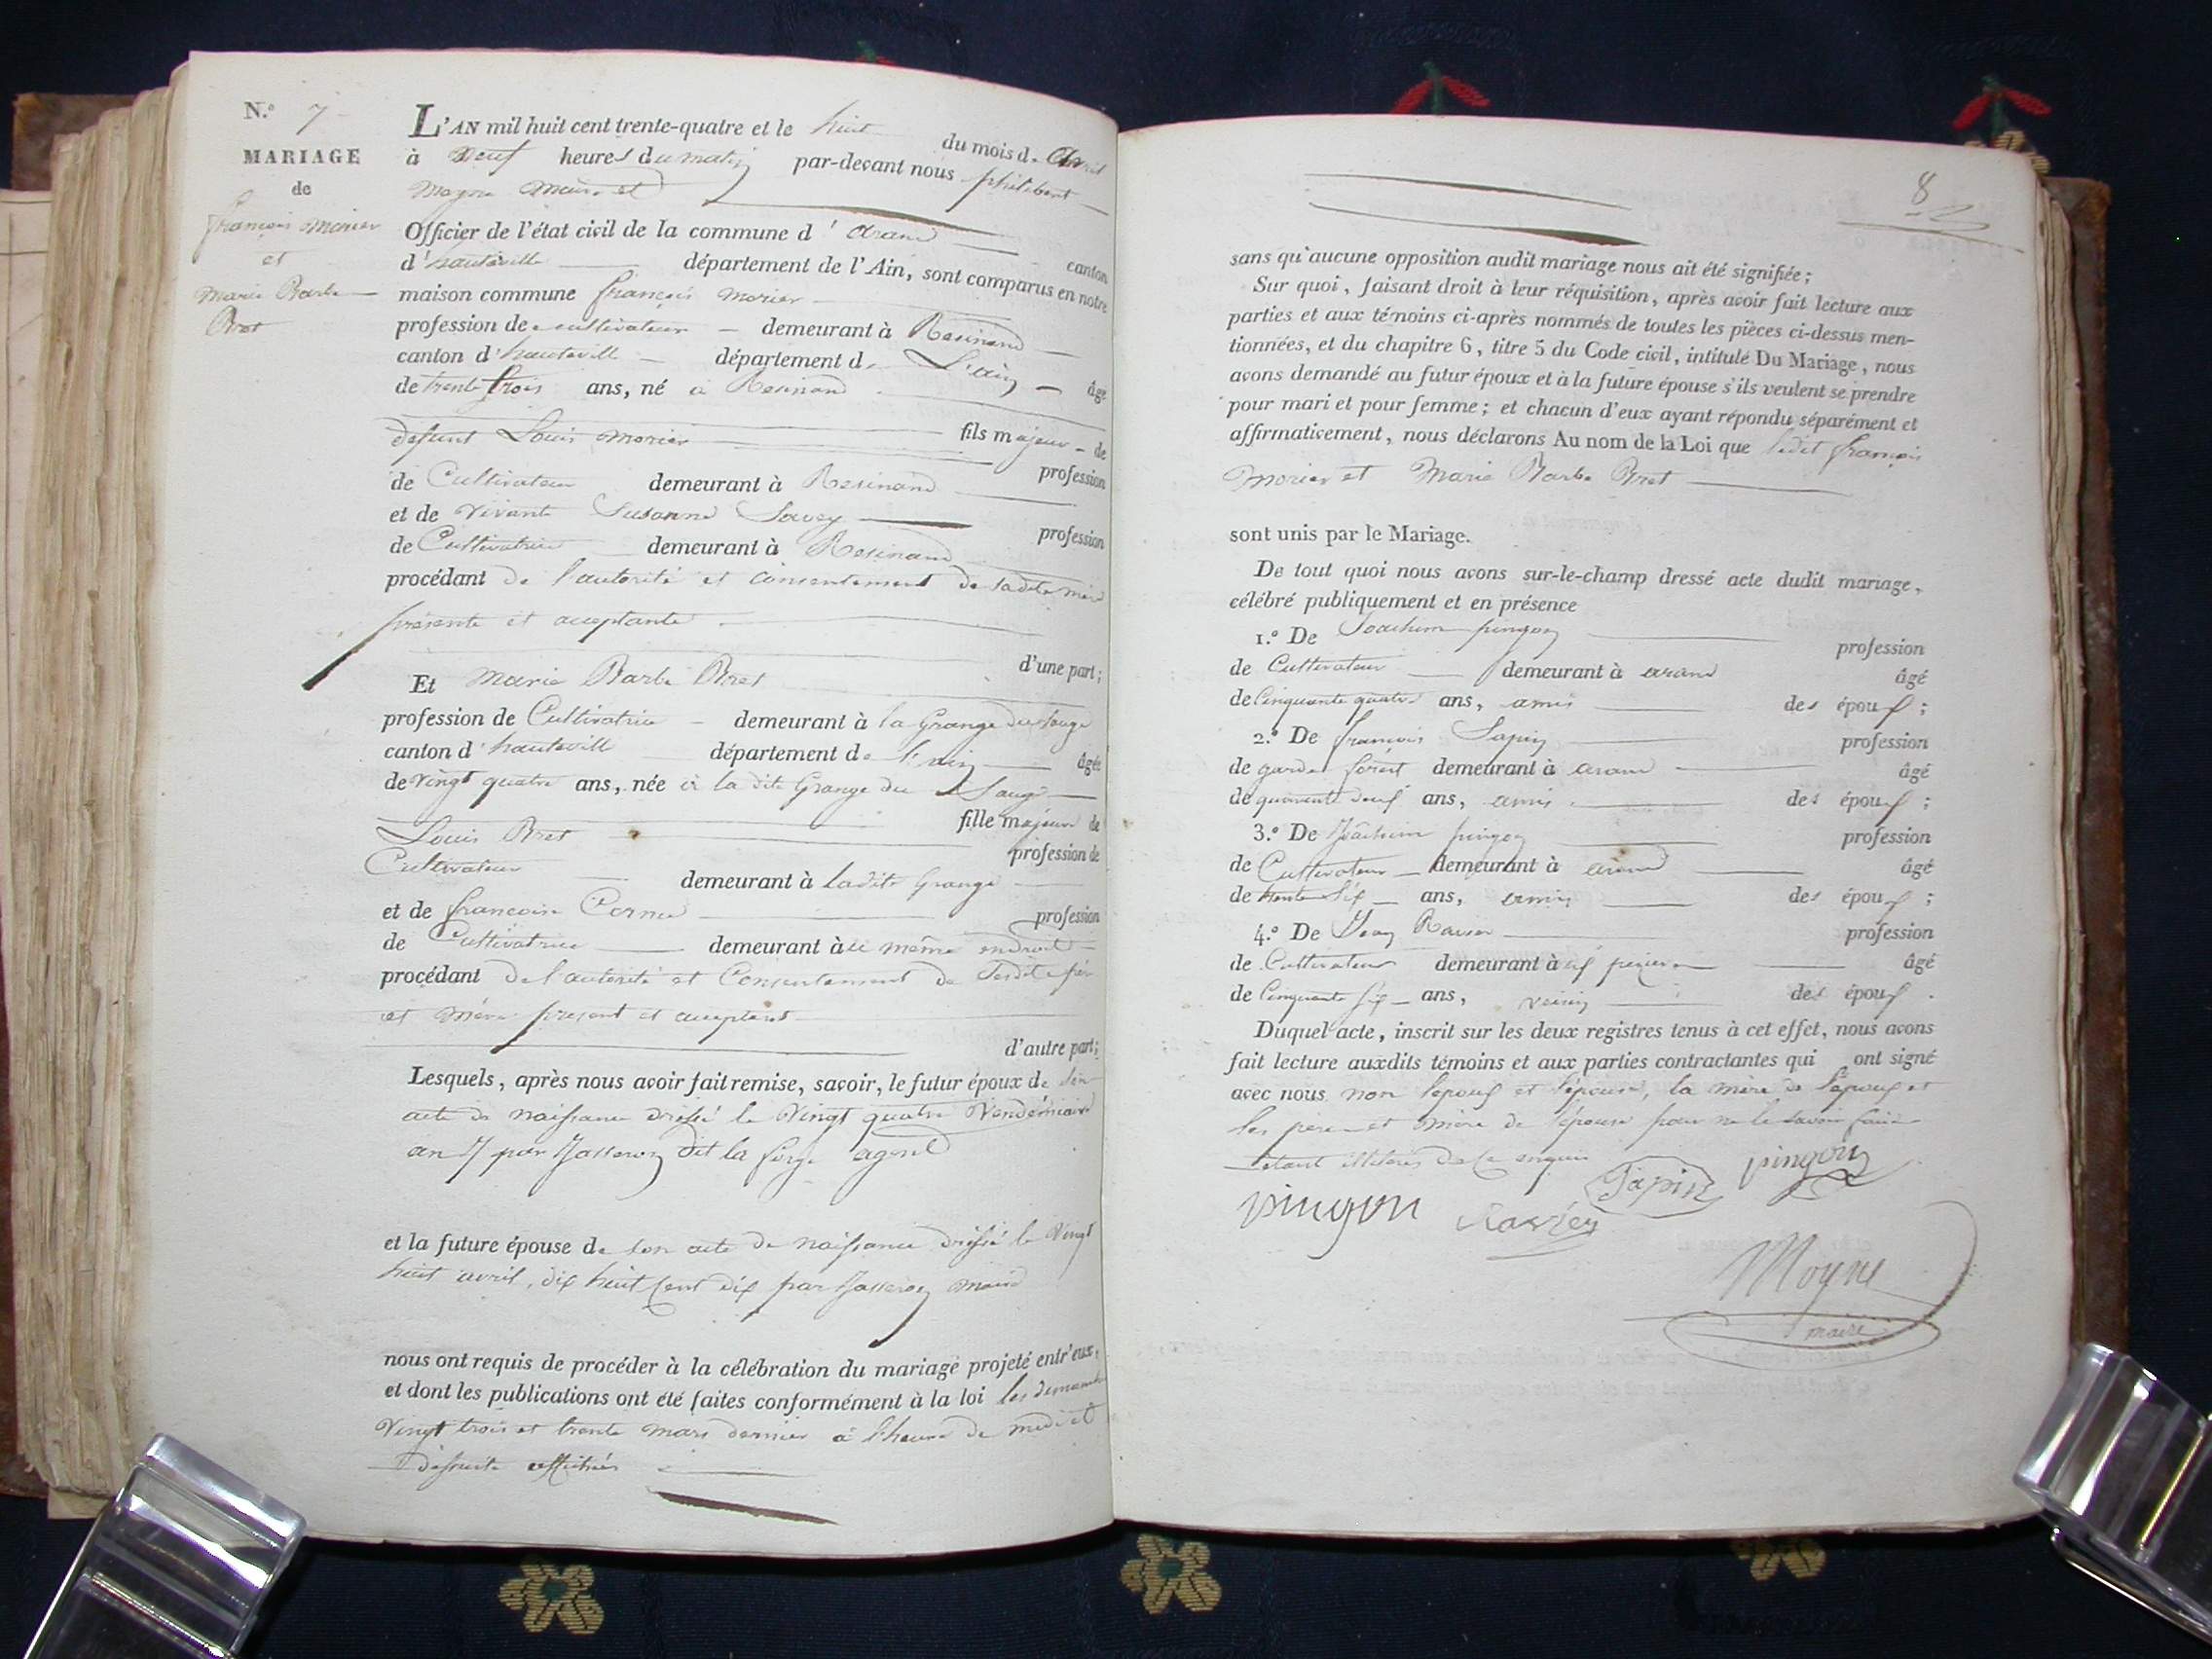 N.º 7
MARIAGE
de
françois morier
et
Marie Barbe
Bret
L'AN mil huit cent trente-quatre et le huit du mois d. avril
à neuf heures du matin par-devant nous philibert
Moyne Maire et
Officier de l'état civil de la commune d' arand canton
d'hauteville département de l'Ain, sont comparus en notre
maison commune françois morier
profession de cultivateur demeurant à Resinand
canton d'hauteville département de L'ain âgé
de trente trois ans, né a Resinand
fils majeur de
defunt Louis morier profession
de Cultivateur demeurant à Resinand
et de vivante Susanne Savey profession
de Cultivatrice demeurant à Resinand
procédant de l'autorité et consentement de sadite mère
présente et acceptante
d'une part;
Et Marie Barbe Bret
profession de Cultivatrice demeurant à la Grange du Sauge
canton d'hauteville département de l'ain âgée
de vingt quatre ans, née à la dite Grange du Sauge
fille majeure de
Louis Bret profession de
Cultivateur demeurant à ladite Grange
et de francoise Cornu profession
de Cultivatrice demeurant à le même endroit
procédant de l'autorité et Consentement de sesdits père
et mère présent et acceptant
d'autre part;
Lesquels, après nous avoir fait remise, savoir, le futur époux de son
acte de naissance dressé le vingt quatre vendémiaire
an par Jasseron dit la forge agent
et la future épouse de son acte de naissance dressé le vingt
huit avril, dix huit cent dix par Jasseron maire
nous ont requis de procéder à la célébration du mariage projeté entr'eux,
et dont les publications ont été faites conformément à la loi les dimanches
vingt trois et trente mars dernier à l'heure de midi et
affichées
8
sans qu'aucune opposition audit mariage nous ait été signifiée;
Sur quoi, faisant droit à leur réquisition, après avoir fait lecture aux
parties et aux témoins ci-après nommés de toutes les pièces ci-dessus men-
tionnées, et du chapitre 6, titre 5 du Code civil, intitulé Du Mariage, nous
avons demandé au futur époux et à la future épouse s'ils veulent se prendre
pour mari et pour femme; et chacun d'eux ayant répondu séparément et
affirmativement, nous déclarons Au nom de la Loi que ledit françois
morier et Marie Barbe Bret
sont unis par le Mariage.
De tout quoi nous avons sur-le-champ dressé acte dudit mariage,
célébré publiquement et en présence
1.º De Joachim pingon profession
de Cultivateur demeurant à arand âgé
de Cinquante quatre ans, amis des époux;
2.º De françois Tapin profession
de garde forest demeurant à arand âgé
de quarante neuf ans, amis des époux;
3.º De Joachim pingon profession
de Cultivateur demeurant à arand âgé
de trente six ans, amis des époux;
4.º De Jean Ravier profession
de Cultivateur demeurant à âgé
de Cinquante six ans, voisin des époux.
Duquel acte, inscrit sur les deux registres tenus à cet effet, nous avons
fait lecture auxdits témoins et aux parties contractantes qui ont signé
avec nous non l'époux et l'épouse, la mère de l'époux et
les père et mère de l'épouse pour ne le savoir faire
étant illitérés de ce enquis
pingon Ravier Tapin pingon
Moyne
maire